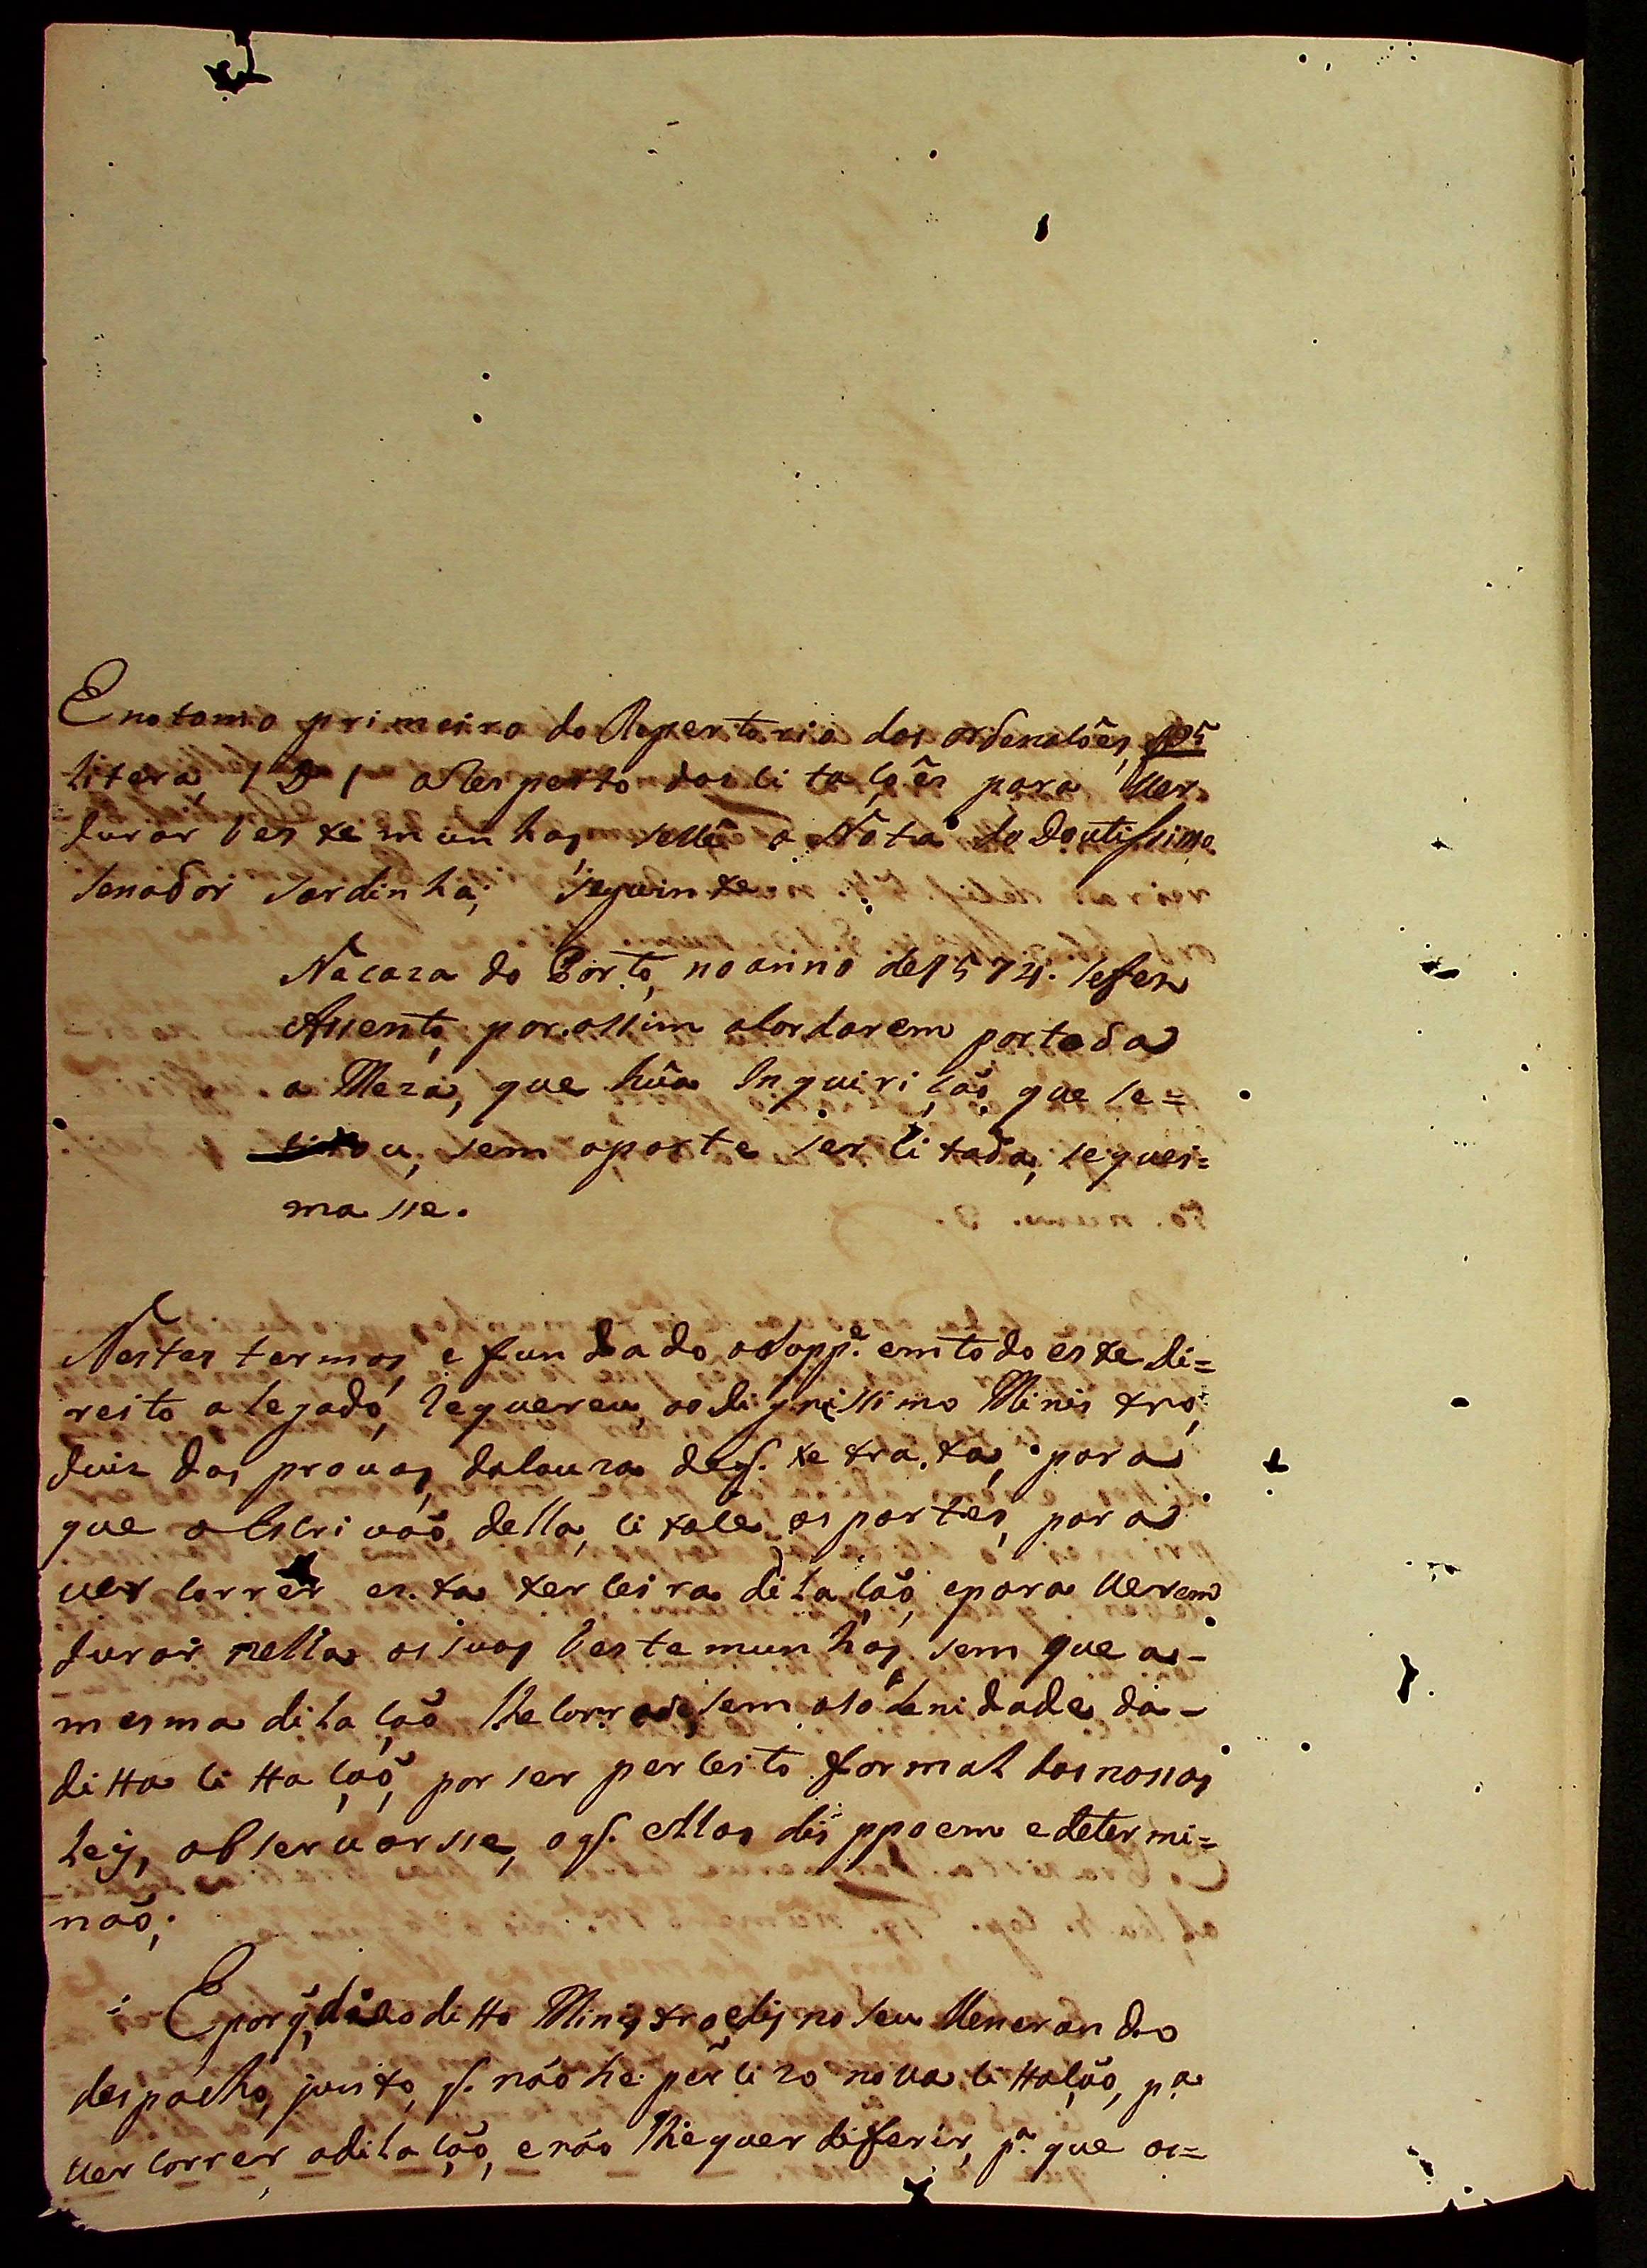 E no tomo primeiro do Repertorio das ordenacoẽs,
litera, / D / aRespeito das Citaçoẽs para Ver
Jurar testemunhas, seVê a Nota do Doutissimo
Senador Sardinha; seguinte.
Nacaza do Porto, no anno de 1574. Sefez
Assento, por assim acordarem portoda
a Meza, que hũa Inquirição que se=
tirou, sem aparte ser Citada, sequei=
masse.
Nestes termos, e fundado oSuppe. emtodo este di=
reito alegado, Requereu, ao dignissimo Ministro,
Juiz das provas, dacauza deq. se trata, para
que oEscrivaõ della, citace, as partes, para
ver correr esta terceira dilaçaõ, epara Verem
Jurar nella as suas testemunhas, sem que a-
mesma dilaçaõ lhe corrase, sem asolenidade da-
ditta Cittaçaõ, por ser perceito formal das nossas
Leys, observarsse, oq. ellas disppoem edetermi=
naõ;
E porq̃ dito ditto Ministro edis no seu Venerando
despacho, junto, q. nãohe perCizo nova Cittação, pa.
ver correr, adilação, enão lhequer diferir, pa. que as=